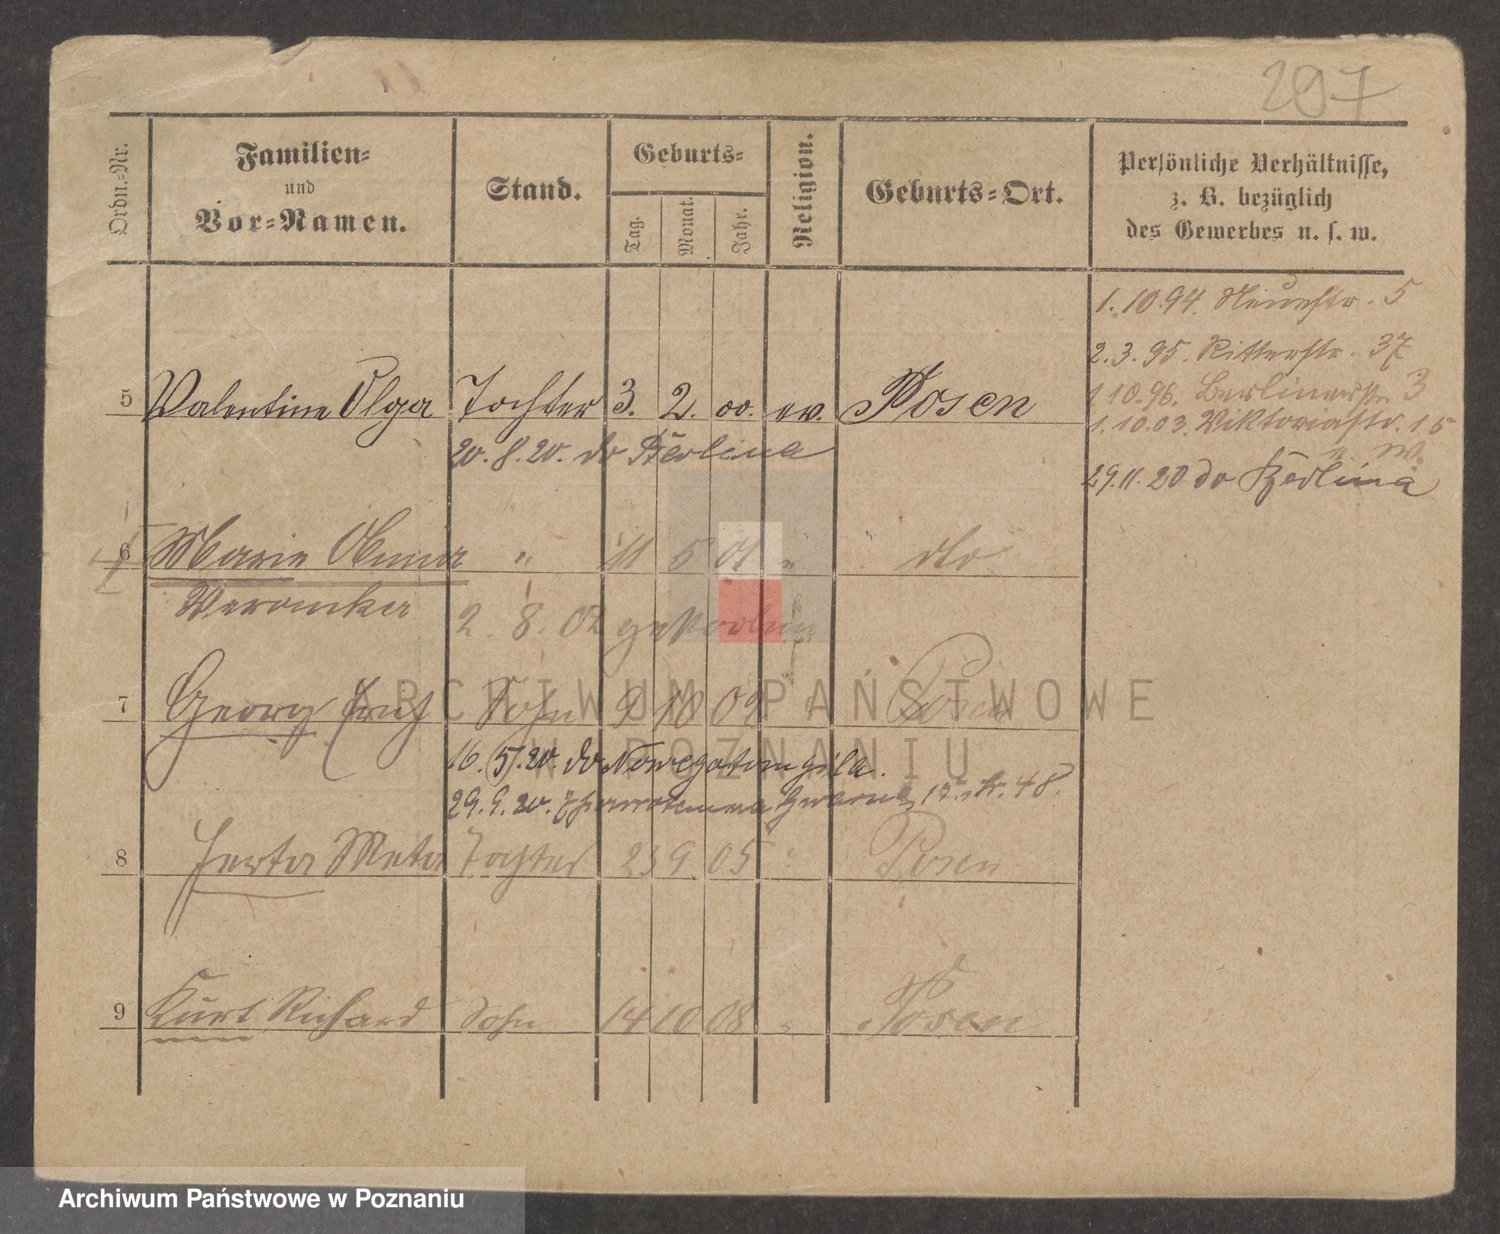 297
Ordn.-Nr.
Familien-
und
Vor-Namen.
Stand.
Geburts-
Tag.
Monat.
Jahr.
Religion.
Geburts-Ort.
Persönliche Verhältnisse,
z. B. bezüglich
des Gewerbes u. s. w.
1.10.94. Neuestr. 5
2.3.95. Ritterstr. 37
1.10.96. Berlinerstr. 3
1.10.03. Viktoriastr. 15
29.11.20 do Berlina
5 Valentine Olga Tochter 3. 2. 00. ev. Posen
20.8.20. do Berlina
6 Marie " 11 5 01 " dto
Weronika
2. 8. 02 gestorben
7 Georg Sohn 9 10 Posen
16.5.20. do
29.9.20. 48.
8 Herta Meta Tochter 23 9 05 Posen
9 Kurt Richard Sohn 14 10 08 " Posen
ARCHIWUM PAŃSTWOWE
W POZNANIU
Archiwum Państwowe w Poznaniu